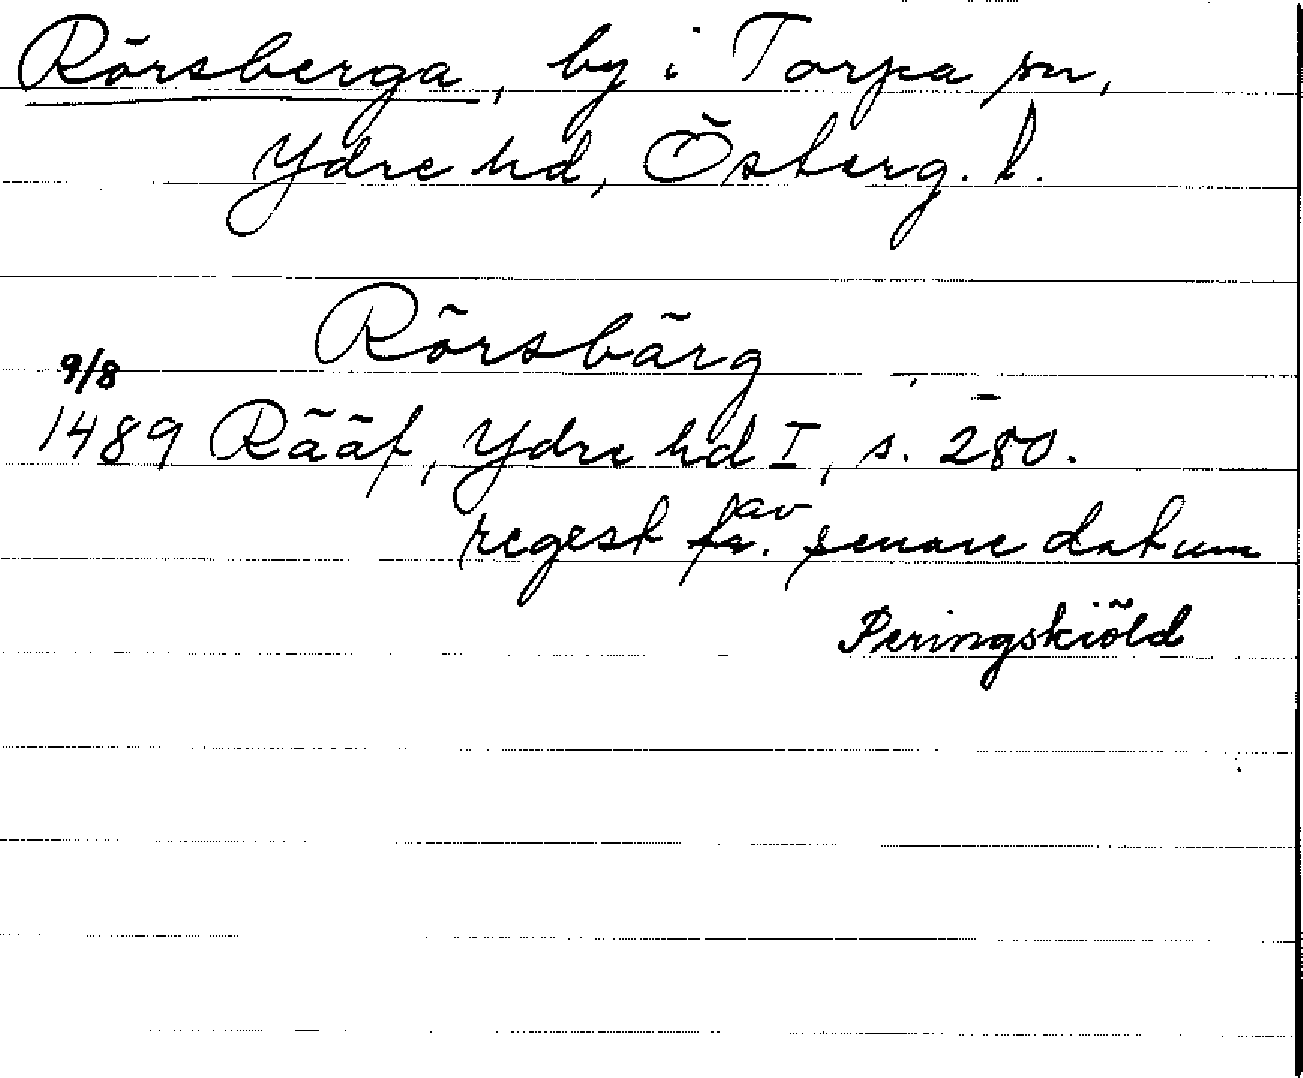 Rörsberga, by i Torpa sn,
Ydre hd, Österg. l.
Rörsbärg
9/8
1489 Rääf, Ydre hd I, s. 280.
regest av senare datum
Peringskiöld